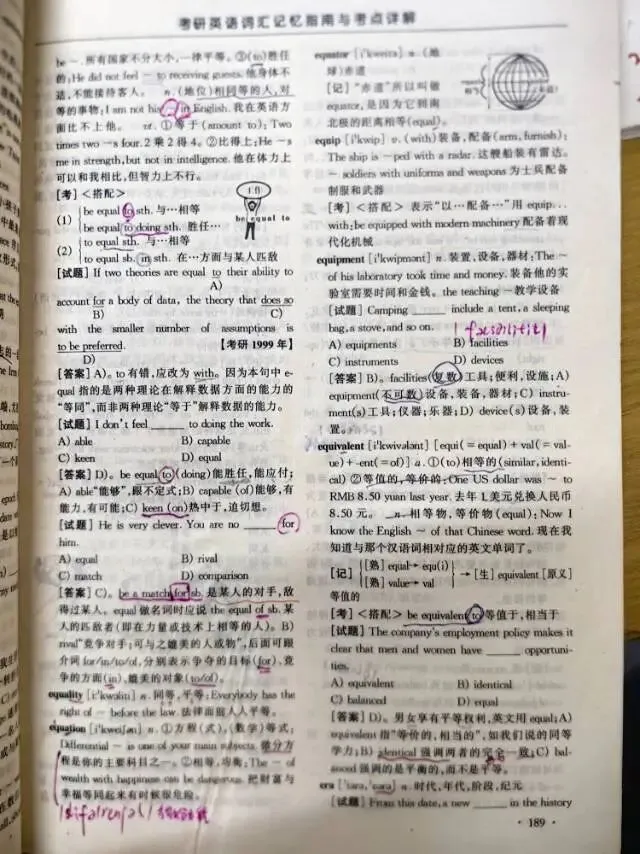 考研英语词汇记忆指南与考点详解
be ~. 所有国家不分大小,一律平等。③(to)胜任
的:He did not feel ~ to receiving guests. 他身体不
适,不能接待客人。 n. (地位)相同等的人,对
等的事物:I am not his ~ in English. 我在英语方
面比不上他。 vt. ①等于(amount to):Two
times two ~s four. 2乘2得4。②比得上:He ~s
me in strength, but not in intelligence. 他在体力上
可以和我相比,但智力上不行。
[考]<搭配>
(1) be equal to sth. 与…相等
be equal to doing sth. 胜任…
(2) to equal sth. 与…相等
to equal sb. in sth. 在…方面与某人匹敌
be equal to
[试题] If two theories are equal to their ability to
A)
account for a body of data, the theory that does so
B) C)
with the smaller number of assumptions is
【考研1999年】
to be preferred.
D)
[答案] A)。to 有错,应改为 with。因为本句中 e-
qual 指的是两种理论在解释数据方面的能力的
“等同”,而非两种理论“等于”解释数据的能力。
[试题] I don't feel ______ to doing the work.
A) able B) capable
C) keen D) equal
[答案] D)。be equal to (doing)能胜任,能应付;
A) able“能够”,跟不定式;B) capable (of)能够,有
能力,有可能;C) keen (on)热中于,迫切想。
[试题] He is very clever. You are no ______ for
him.
A) equal B) rival
C) match D) comparison
[答案] C)。be a match for sb. 是某人的对手,敌
得过某人。equal 做名词时应说 the equal of sb. 某
人的匹敌者(即在力量或技术上相等的人)。B)
rival“竞争对手;可与之媲美的人或物”,后面可跟
介词 for/in/to/of,分别表示争夺的目标(for)、竞
争的方面(in)、媲美的对象(to/of)。
equality [i'kwɔliti] n. 同等,平等:Everybody has the
right of ~ before the law. 法律面前人人平等。
equation [i'kweiʃən] n. ①方程(式),(数学)等式:
Differential ~ is one of your main subjects. 微分方
程是你的主要科目之一。②相等,均衡:The ~ of
wealth with happiness can be dangerous. 把财富与
幸福等同起来有时候很危险。
equator [i'kweitə] n. (地
球)赤道
[记]“赤道”所以叫做
equator,是因为它到南
北极的距离相等(equal)。
equip [i'kwip] v. (with)装备,配备(arm, furnish):
The ship is ~ped with a radar. 这艘船装有雷达。
~ soldiers with uniforms and weapons 为士兵配备
制服和武器
[考]<搭配> 表示“以…配备…”用 equip…
with;be equipped with modern machinery 配备着现
代化机械
equipment [i'kwipmənt] n. 装置,设备,器材:The ~
of his laboratory took time and money. 装备他的实
验室需要时间和金钱。the teaching ~教学设备
[试题] Camping ______ include a tent, a sleeping
bag, a stove, and so on.
A) equipments B) facilities
C) instruments D) devices
[答案] B)。facilities(复数)工具;便利,设施;A)
equipment(不可数)设备,装备,器材;C) instru-
ment(s)工具;仪器;乐器;D) device(s)设备,装
置。
equivalent [i'kwivələnt] [equi(=equal)+val(=val-
ue)+-ent(=of)] a. ①(to)相等的(similar, identi-
cal) ②等值的,等价的:One US dollar was ~ to
RMB 8.50 yuan last year. 去年1美元兑换人民币
8.50元。 n. 相等物,等价物(equal):Now I
know the English ~ of that Chinese word. 现在我
知道与那个汉语词相对应的英文单词了。
[记] [熟] equal→equ(i) [熟] value→val →[生] equivalent [原义]
等值的
[考]<搭配> be equivalent to 等值于,相当于
[试题] The company's employment policy makes it
clear that men and women have ______ opportuni-
ties.
A) equivalent B) identical
C) balanced D) equal
[答案] D)。男女享有平等权利,英文用 equal;A)
equivalent 指“等价的,相当的”,如我们说的同等
学力;B) identical 强调两者的完全一致;C) bal-
anced 强调的是平衡的,而不是平等。
era ['iərə, 'eərə] n. 时代,年代,阶段,纪元
[试题] From this date, a new ______ in the history
·189·